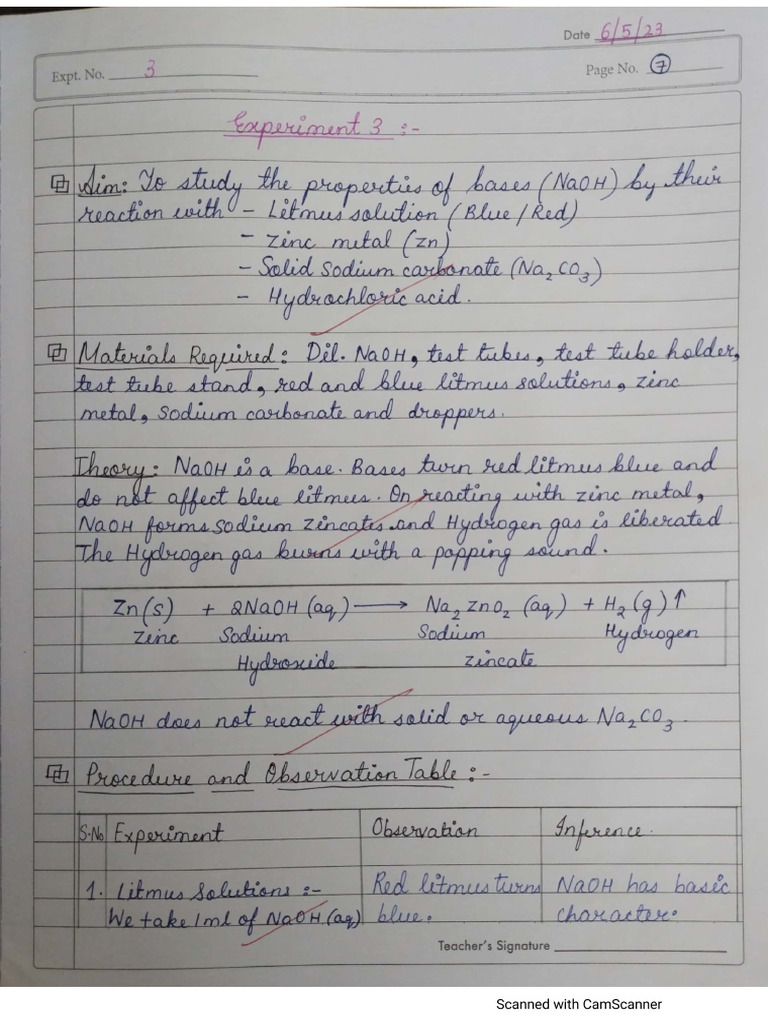 Date 6/5/23
Expt. No. 3
Page No. 7
Experiment 3 :-
Aim: To study the properties of bases (NaOH) by their
reaction with - Litmus solution (Blue/Red)
- Zinc metal (Zn)
- Solid Sodium carbonate (Na₂CO₃)
- Hydrochloric acid.
Materials Required: Dil. NaOH, test tubes, test tube holder,
test tube stand, red and blue litmus solutions, zinc
metal, sodium carbonate and droppers.
Theory: NaOH is a base. Bases turn red litmus blue and
do not affect blue litmus. On reacting with zinc metal,
NaOH forms sodium zincates and Hydrogen gas is liberated.
The Hydrogen gas burns with a popping sound.
Zn(s) + 2NaOH (aq) ⟶ Na₂ZnO₂ (aq) + H₂(g)↑
Zinc Sodium Sodium Hydrogen
Hydroxide zincate
NaOH does not react with solid or aqueous Na₂CO₃.
Procedure and Observation Table :-
S.No Experiment Observation Inference.
1. Litmus Solutions :- Red litmus turns NaOH has basic
We take 1ml of NaOH (aq) blue. character.
Teacher's Signature
Scanned with CamScanner